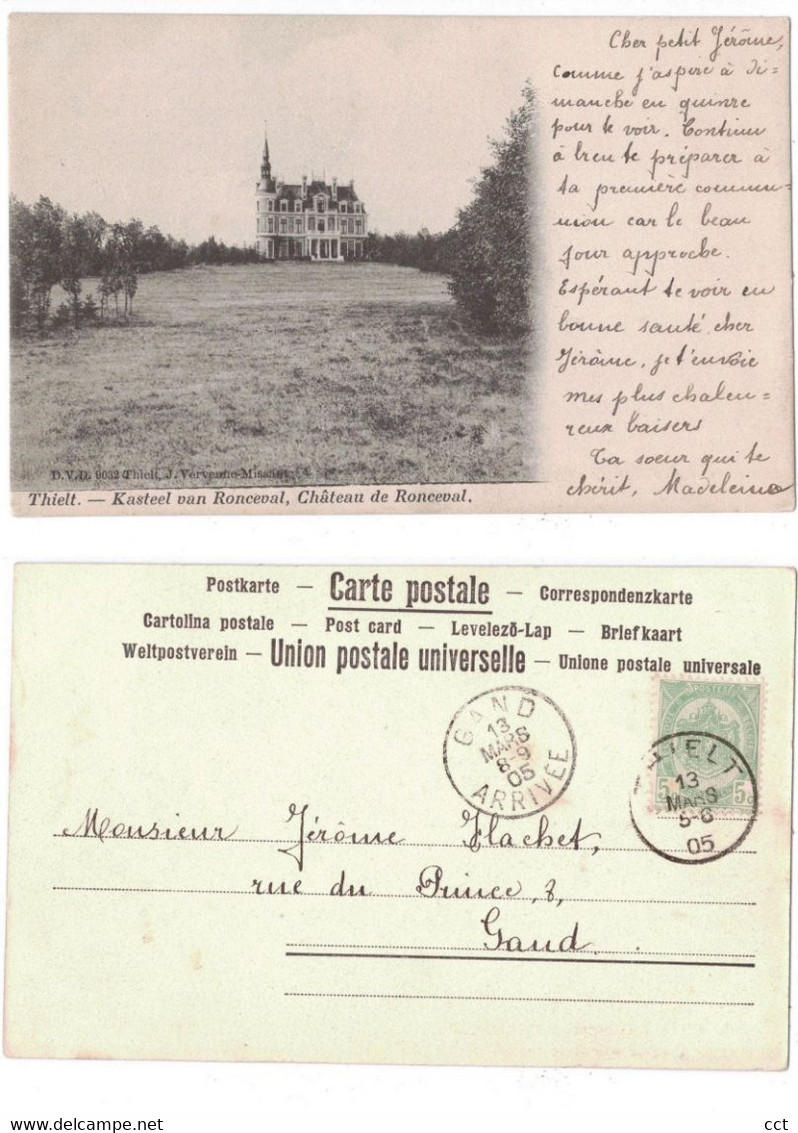 Cher petit Jérôme,
comme j'aspire à di-
manche en quinze
pour te voir. Continu
à bien te préparer à
ta première commu-
nion car le beau
jour approche.
Espérant te voir en
bonne santé, cher
Jérôme, je t'envoie
mes plus chaleu-
reux baisers
Ta soeur qui te
chérit, Madeleine
D.V.D. 9032 Thielt, J. Vervenne-Missiaen
Thielt. — Kasteel van Ronceval, Château de Ronceval.
Postkarte — Carte postale — Correspondenzkarte
Cartolina postale — Post card — Levelező-Lap — Briefkaart
Weltpostverein — Union postale universelle — Unione postale universale
GAND
13
MARS
8-9
05
ARRIVÉE
POSTES
5c 5c
THIELT
13
MARS
5-6
05
Monsieur Jérôme Hachet,
rue du Prince, 8,
Gand
cct